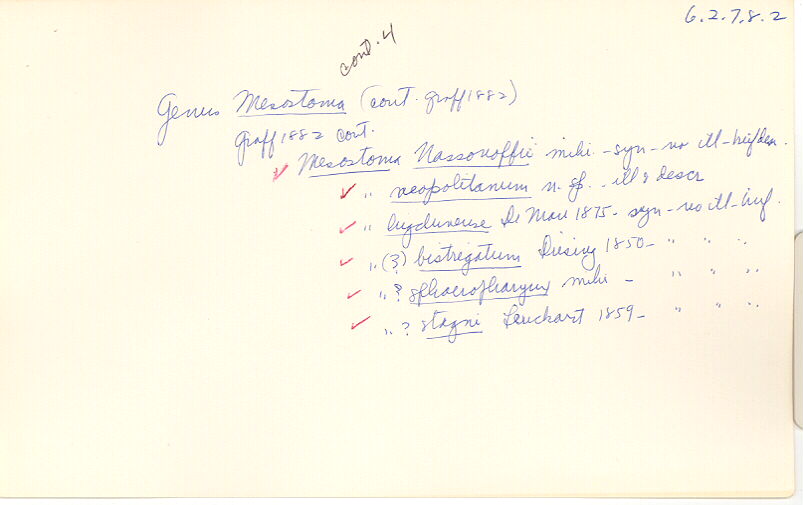 6.2.7.8.2
cont. 4
Genus Mesostoma (cont. graff 1882)
graff 1882 cont.
✓ Mesostoma Nassonoffii mihi - syn - no ill -
✓ " neopolitanum n. sp. . ill & descr
✓ " lugdunense De Man 1875 - syn - no ill - brief.
✓ " (?) bistrigatum Diesing 1850 - " " "
✓ " ? sphaeropharynx mihi - " " "
✓ " ? stagni Leuckart 1859 - " " "